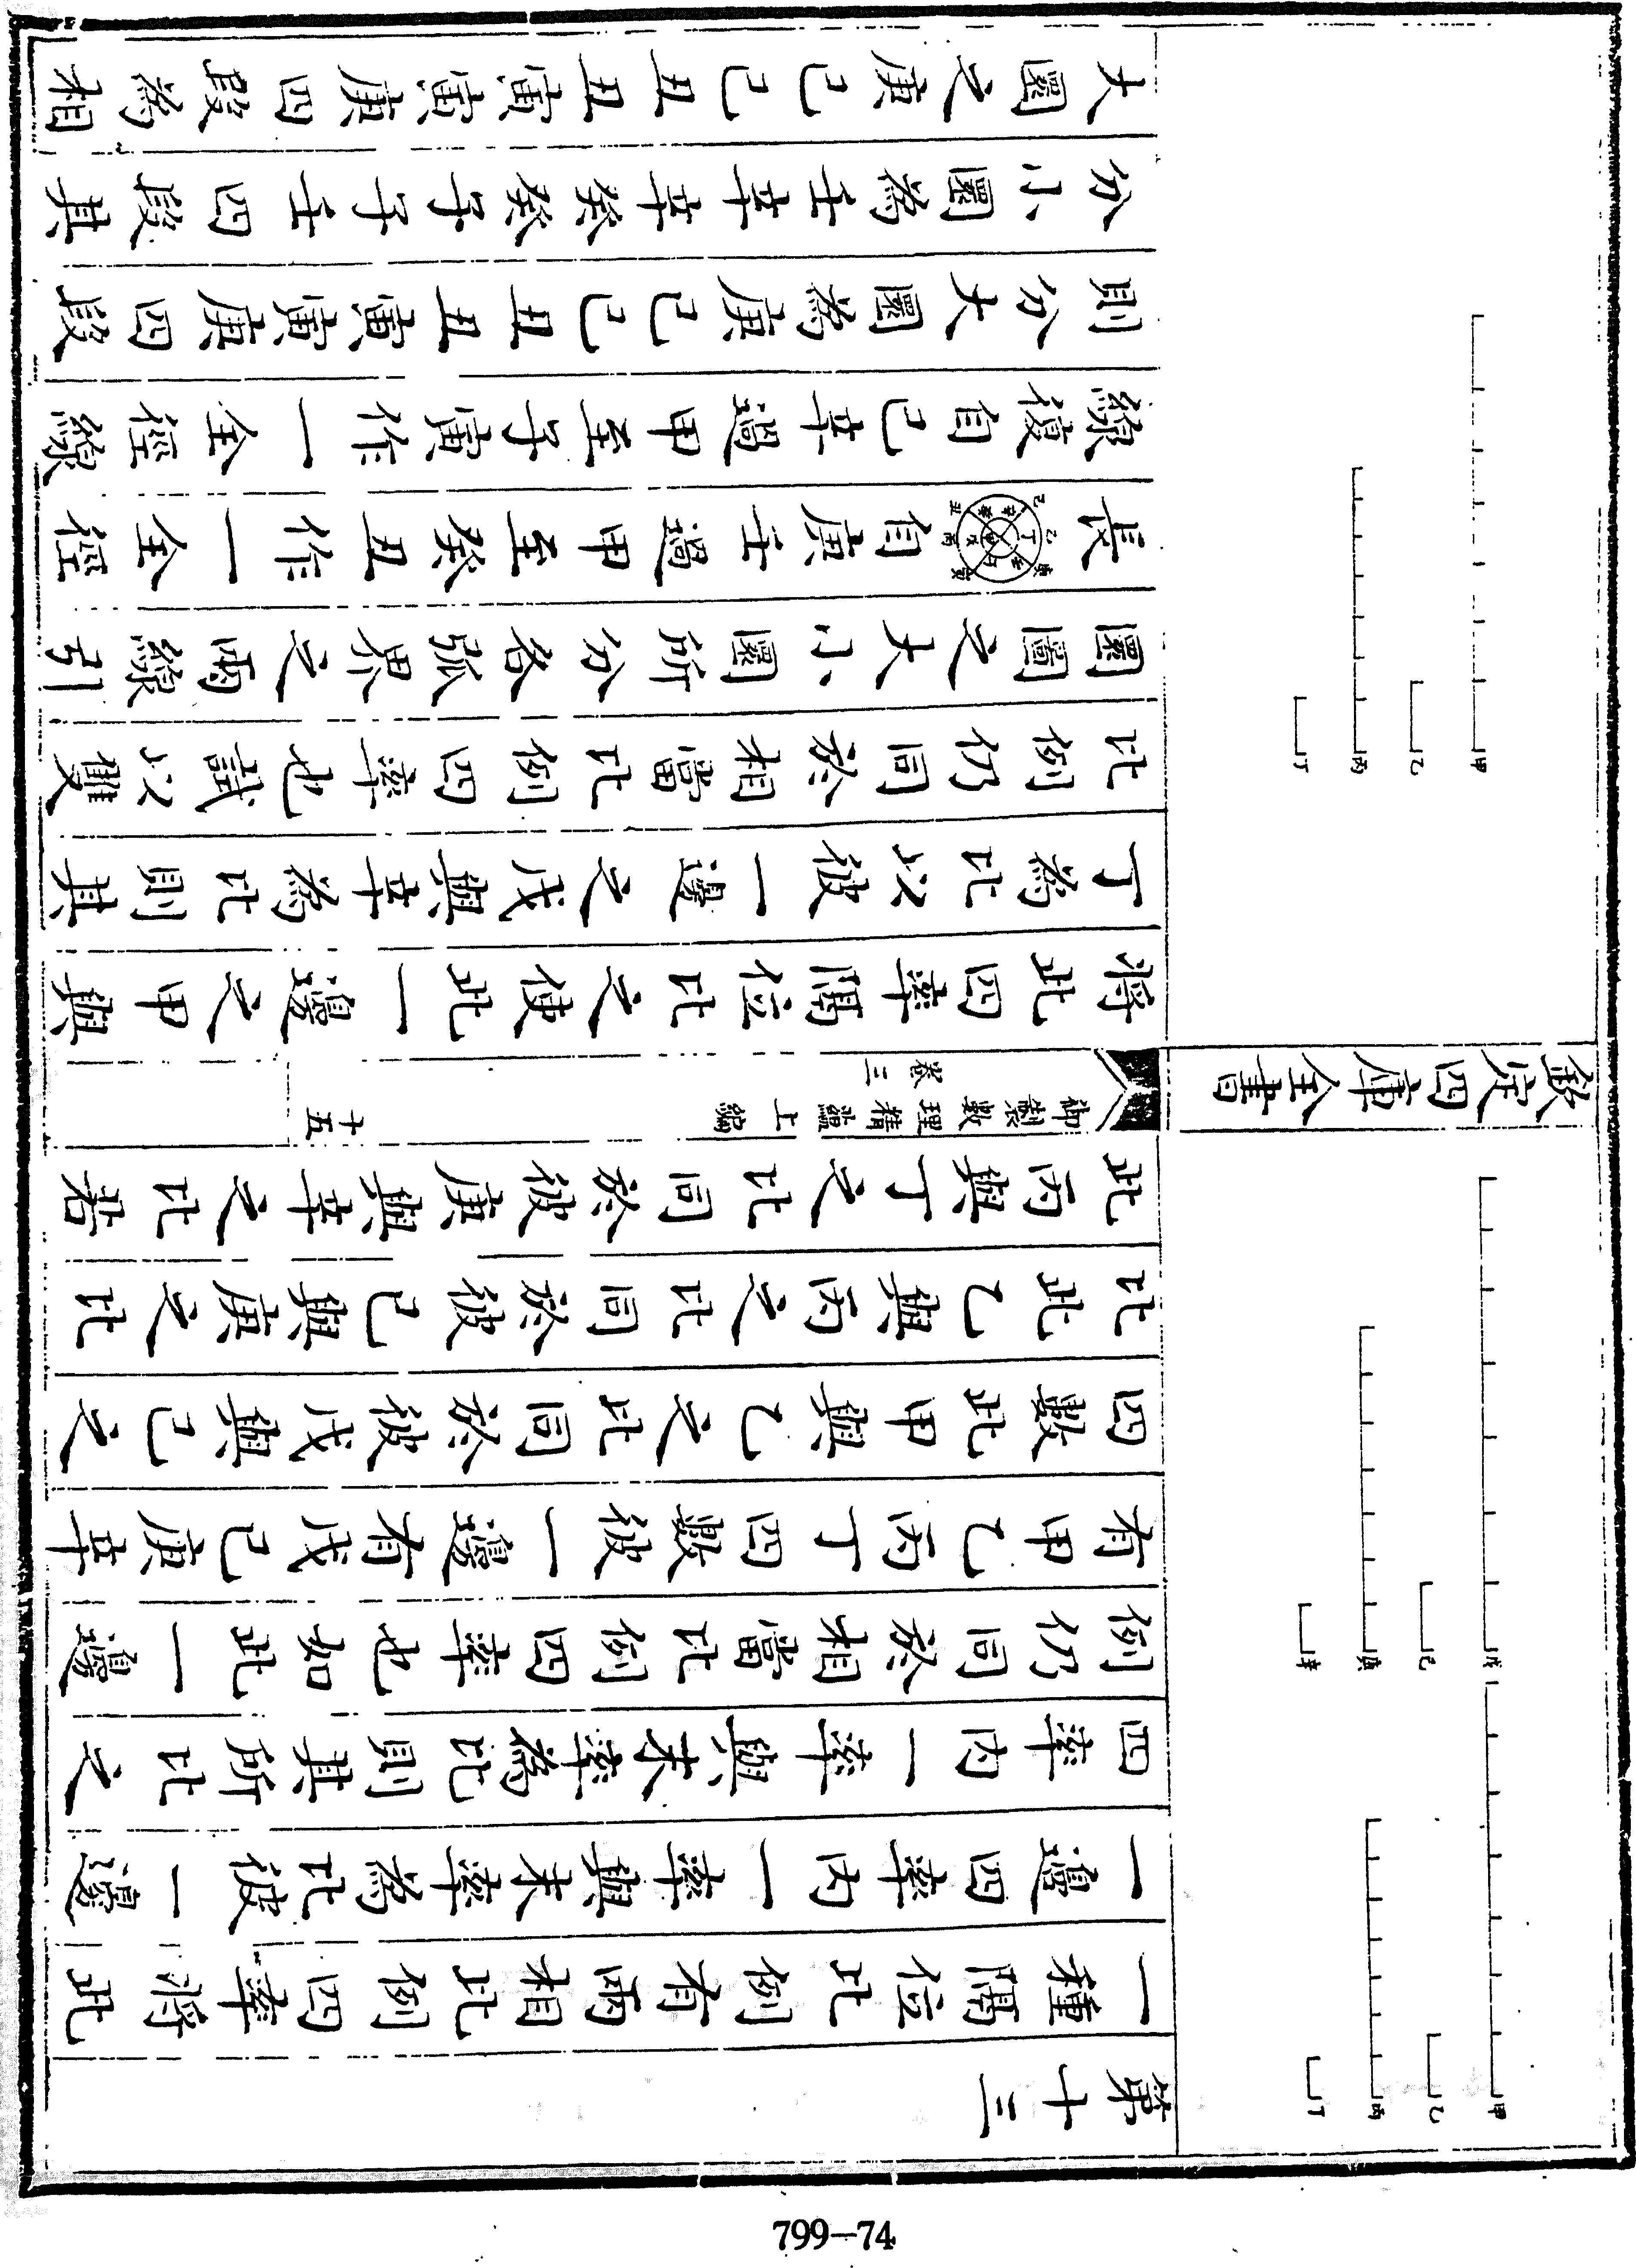 第十三
一種隔位比例有兩相比例四率將此
一邊四率内一率與末率為比彼一邊
四率内一率與末率為比則其所比之
例仍同於相當比例四率也如此一邊
有甲乙丙丁四數彼一邊有戊己庚辛
四數此甲與乙之比同於彼戊與己之
比此乙與丙之比同於彼己與庚之比
此丙與丁之比同於彼庚與辛之比若
甲
乙
丙
丁
戊
己
庚
辛
欽定四庫全書
御製數理精蘊上編
卷三
十五
將此四率隔位比之使此一邊之甲與
丁為比以彼一邊之戊與辛為比則其
比例仍同於相當比例四率也試以雙
圜圖之大小圜所分各弧界之兩線引
長自庚壬過甲至癸丑作一全徑
線復自己辛過甲至子寅作一全徑線
則分大圜為庚己己丑丑寅寅庚四段
分小圜為壬辛辛癸癸子子壬四段其
大圜之庚己己丑丑寅寅庚四段為相
甲
乙
丙
丁
己
丑
乙
丙
庚
寅
辛
丁
799-74